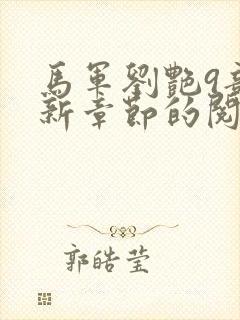 馬軍劉艷9
新章節的閱
郭皓莹